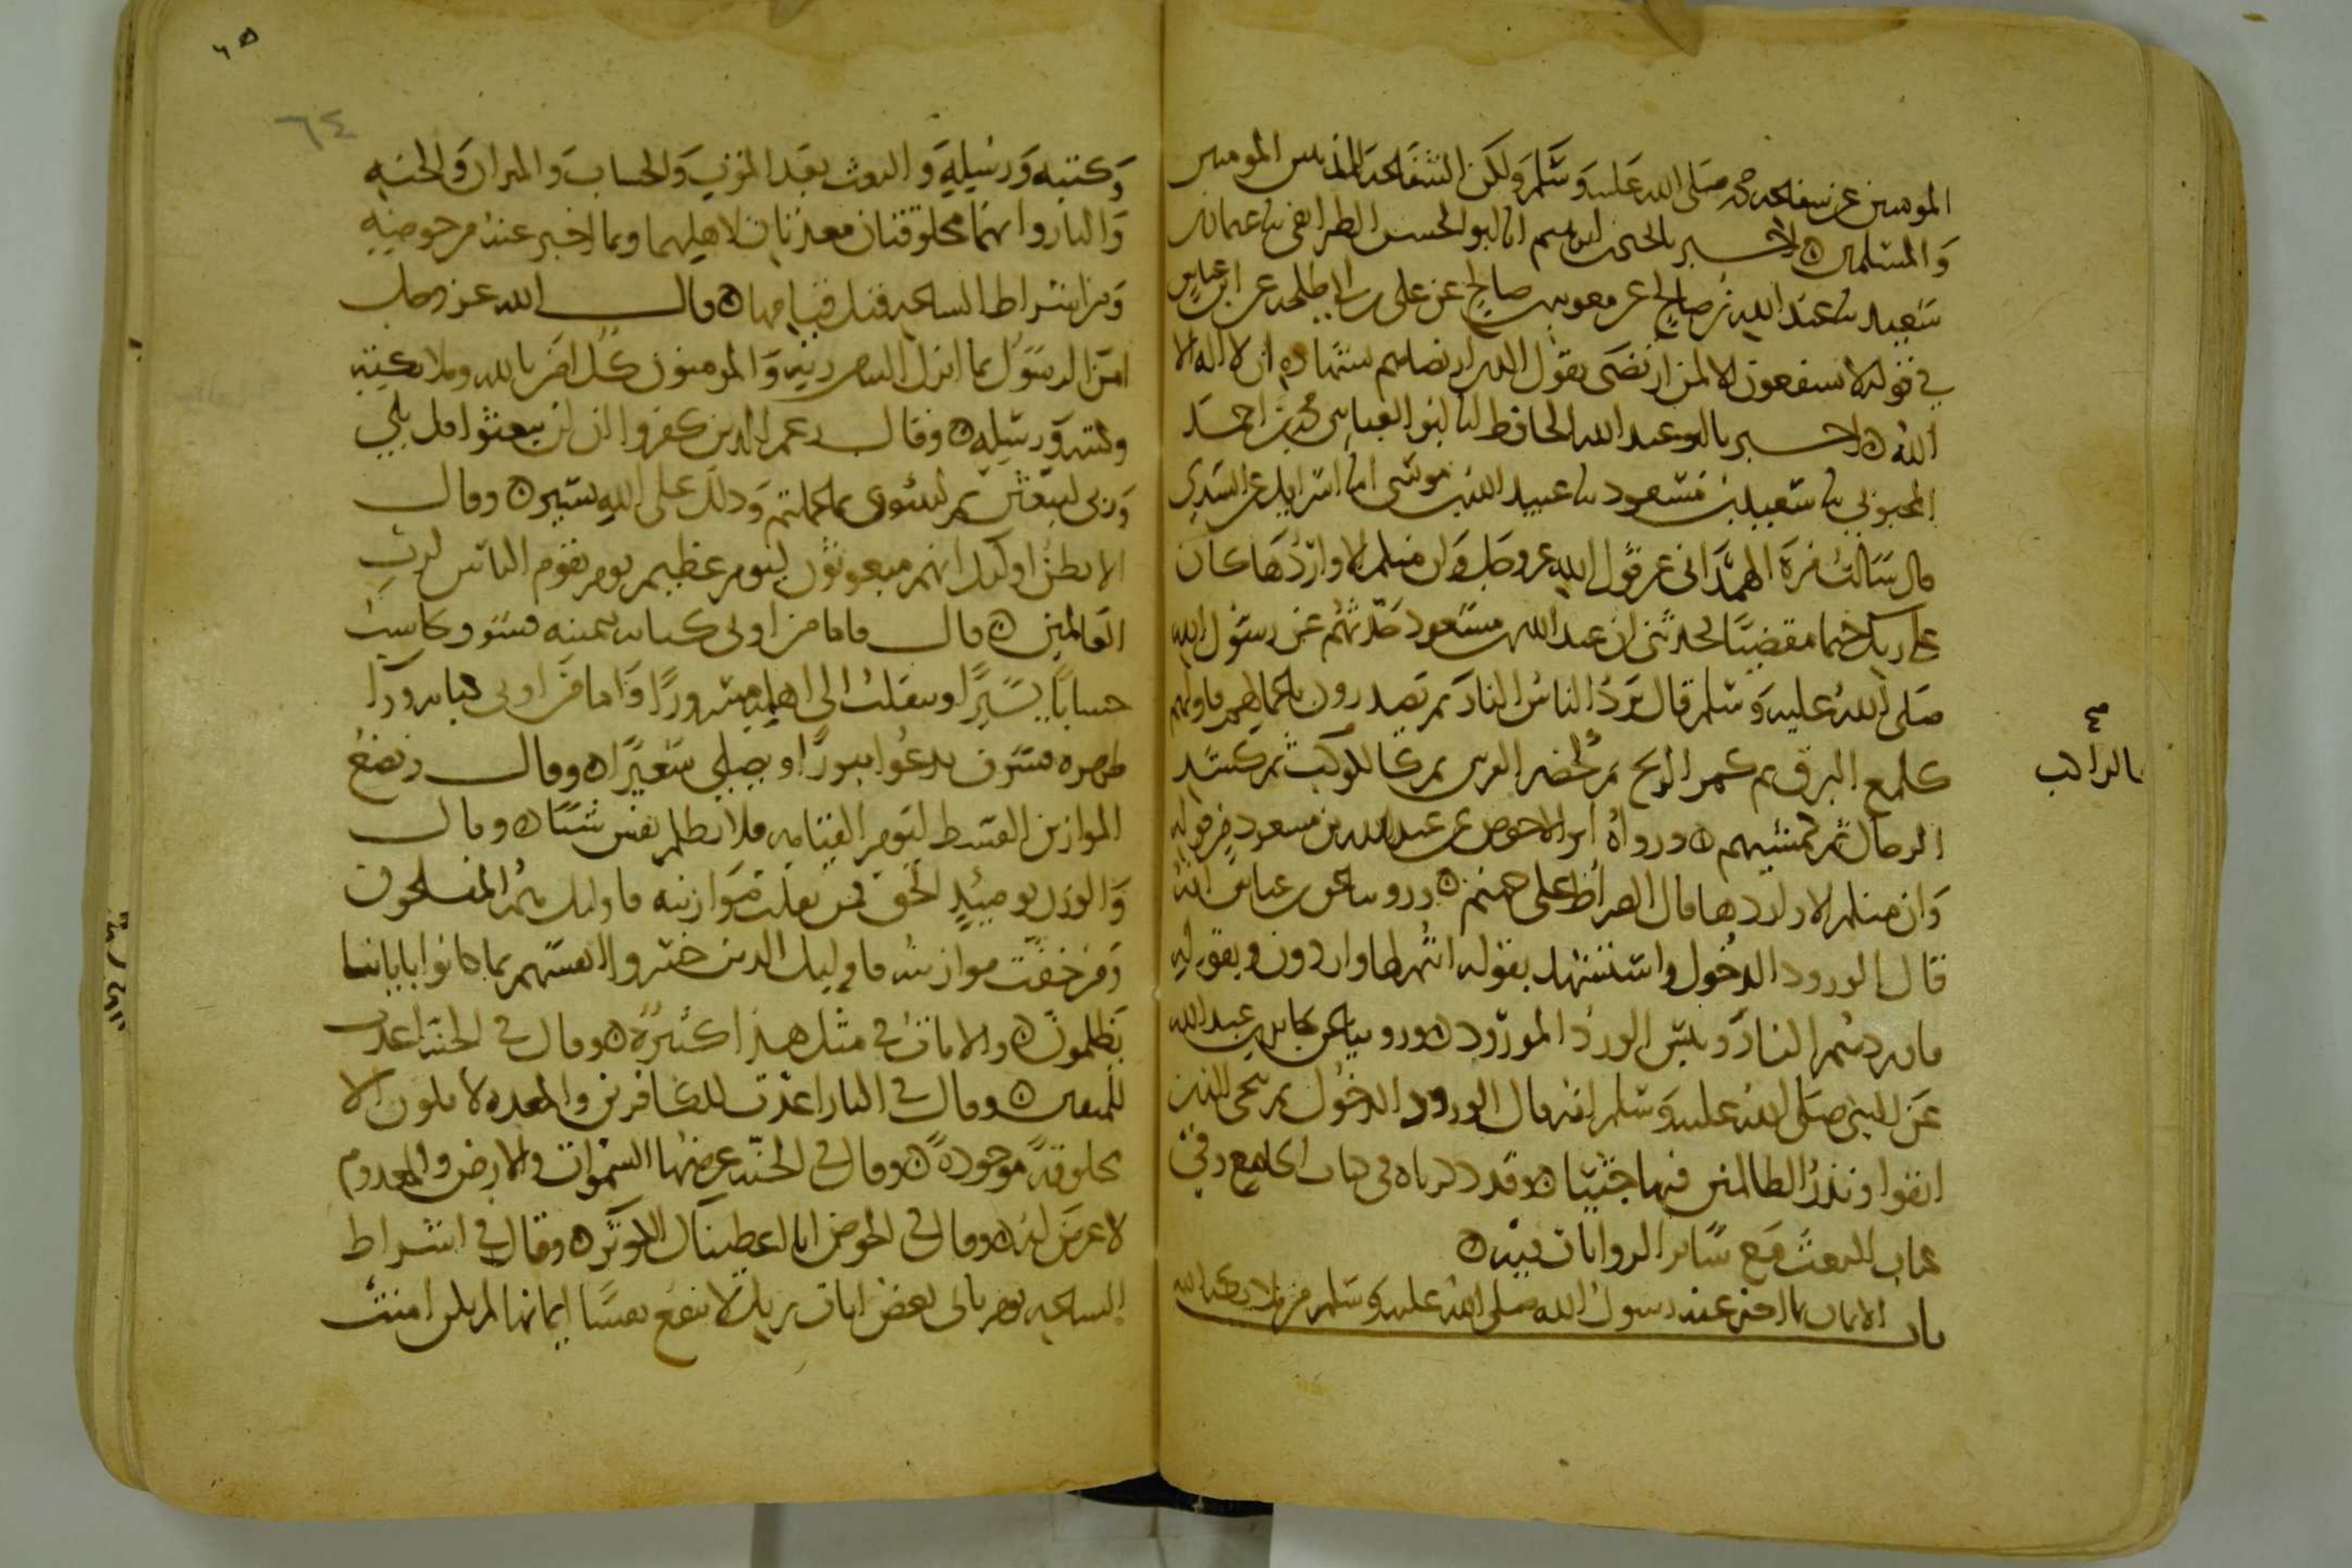 المومنين عن شفاعه محمد صلى الله عليه وسلم ولكن الشفاعه للمذنبين المومنين
والمسلمين ۝ اخبرنا يحيى بن ابرهيم انا ابو الحسن الطرائفي ثنا عثمان بن
سعيد ثنا عبد الله بن صالح عن معويه بن صالح عن علي بن ابي طلحه عن ابن عباس
في قوله لا يشفعون الا لمن ارتضى يقول الذين ارتضاهم بشهاده ان لا اله الا
الله ۝ اخبرنا ابو عبد الله الحافظ انا ابو العباس محمد بن احمد
المحبوبي ثنا سعيد بن مسعود ثنا عبيد الله بن موسى انا اسرايل عن السدي
قال سالت مره الهمداني عن قول الله عز وجل وان منكم الا واردها كان
على ربك حتما مقضيا فحدثني ان عبد الله بن مسعود حدثهم عن رسول الله
صلى الله عليه وسلم قال يرد الناس النار ثم يصدرون باعمالهم فاولهم
كلمع البرق ثم كمر الريح ثم كحضر الفرس ثم كالراكب ثم كشد
الرجال ثم كمشيهم ۝ ورواه ابو الاحوص عن عبد الله بن مسعود في قوله
وان منكم الا واردها قال الصراط على جهنم ۝ وروينا عن ابن عباس انه
قال الورود الدخول واستشهد بقوله انتم لها واردون وبقوله
فاوردهم النار وبئس الورد المورود ۝ وروينا عن جابر بن عبد الله
عن النبي صلى الله عليه وسلم انه قال الورود الدخول ثم ننجي الذين
اتقوا ونذر الظالمين فيها جثيا ۝ وقد ذكرناه في كتاب الجامع وفي
كتاب البعث مع ساير الروايات فيه ۝
باب الايمان بما اخبر عنه رسول الله صلى الله عليه وسلم من ملايكه الله
صح
كالراكب
٦٥
٦٤
وكتبه ورسله والبعث بعد الموت والحساب والميزان والجنه
والنار وانهما مخلوقتان معدتان لاهليهما وبما اخبر عنه من حوضه
ومن اشراط الساعه قبل قيامها ۝ قال الله عز وجل
امن الرسول بما انزل اليه من ربه والمومنون كل امن بالله وملايكته
وكتبه ورسله ۝ وقال زعم الذين كفروا ان لن يبعثوا قل بلى
وربي لتبعثن ثم لتنبؤن بما عملتم وذلك على الله يسير ۝ وقال
الا يظن اوليك انهم مبعوثون ليوم عظيم يوم يقوم الناس لرب
العالمين ۝ قال فاما من اوتي كتابه بيمينه فسوف يحاسب
حسابا يسيرا وينقلب الى اهله مسرورا واما من اوتي كتابه ورا
ظهره فسوف يدعوا ثبورا ويصلى سعيرا ۝ وقال ونضع
الموازين القسط ليوم القيامه فلا تظلم نفس شيا ۝ وقال
والوزن يوميذ الحق فمن ثقلت موازينه فاوليك هم المفلحون
ومن خفت موازينه فاوليك الذين خسروا انفسهم بما كانوا باياتنا
يظلمون ۝ والايات في مثل هذا كثيره ۝ وقال في الجنه اعدت
للمتقين ۝ وقال في النار اعدت للكافرين والمعده لا تكون الا
مخلوقه موجوده ۝ وقال في الجنه عرضها السموات والارض والمعدوم
لا عرض له ۝ وقال في الحوض انا اعطيناك الكوثر ۝ وقال في اشراط
الساعه يوم ياتي بعض ايات ربك لا ينفع نفسا ايمانها لم تكن امنت